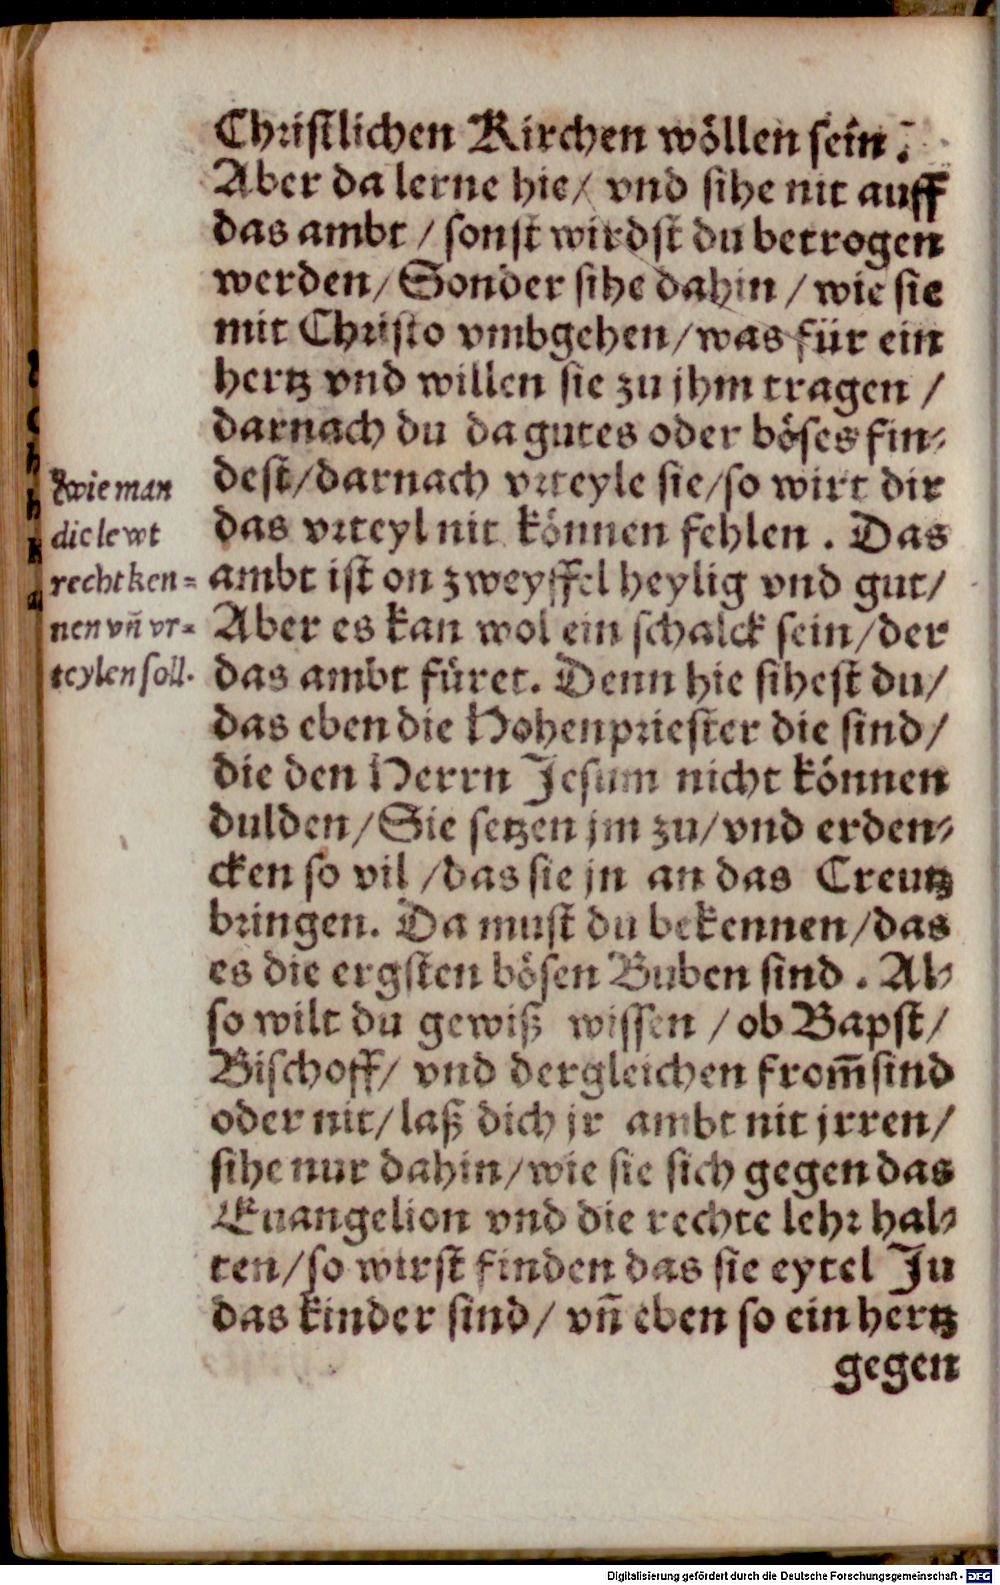 Christlichen Kirchen wöllen sein.
Aber da lerne hie/ vnd sihe nit auff
das ambt / sonst wirdst du betrogen
werden/ Sonder sihe dahin / wie sie
mit Christo vmbgehen/ was für ein
hertz vnd willen sie zu jhm tragen /
darnach du da gutes oder böses fin-
dest/ darnach vrteyle sie/ so wirt dir
das vrteyl nit können fehlen . Das
ambt ist on zweyffel heylig vnd gut/
Aber es kan wol ein schalck sein/ der
das ambt füret. Denn hie sihest du/
das eben die Hohenpriester die sind/
die den Herrn Jesum nicht können
dulden/ Sie setzen jm zu/ vnd erden-
cken so vil / das sie jn an das Creutz
bringen. Da must du bekennen/ das
es die ergsten bösen Buben sind . Al-
so wilt du gewiß wissen / ob Bapst/
Bischoff/ vnd dergleichen from̃ sind
oder nit/ laß dich jr ambt nit jrren/
sihe nur dahin/ wie sie sich gegen das
Euangelion vnd die rechte lehr hal-
ten/ so wirst finden das sie eytel Ju
das kinder sind/ vñ eben so ein hertz
gegen
wie man
die lewt
recht ken=
nen vñ vr=
teylen soll.
Digitalisierung gefördert durch die Deutsche Forschungsgemeinschaft - DFG